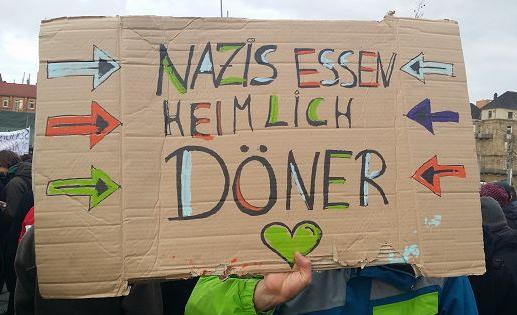 NAZIS ESSEN
HEIMLICH
DÖNER